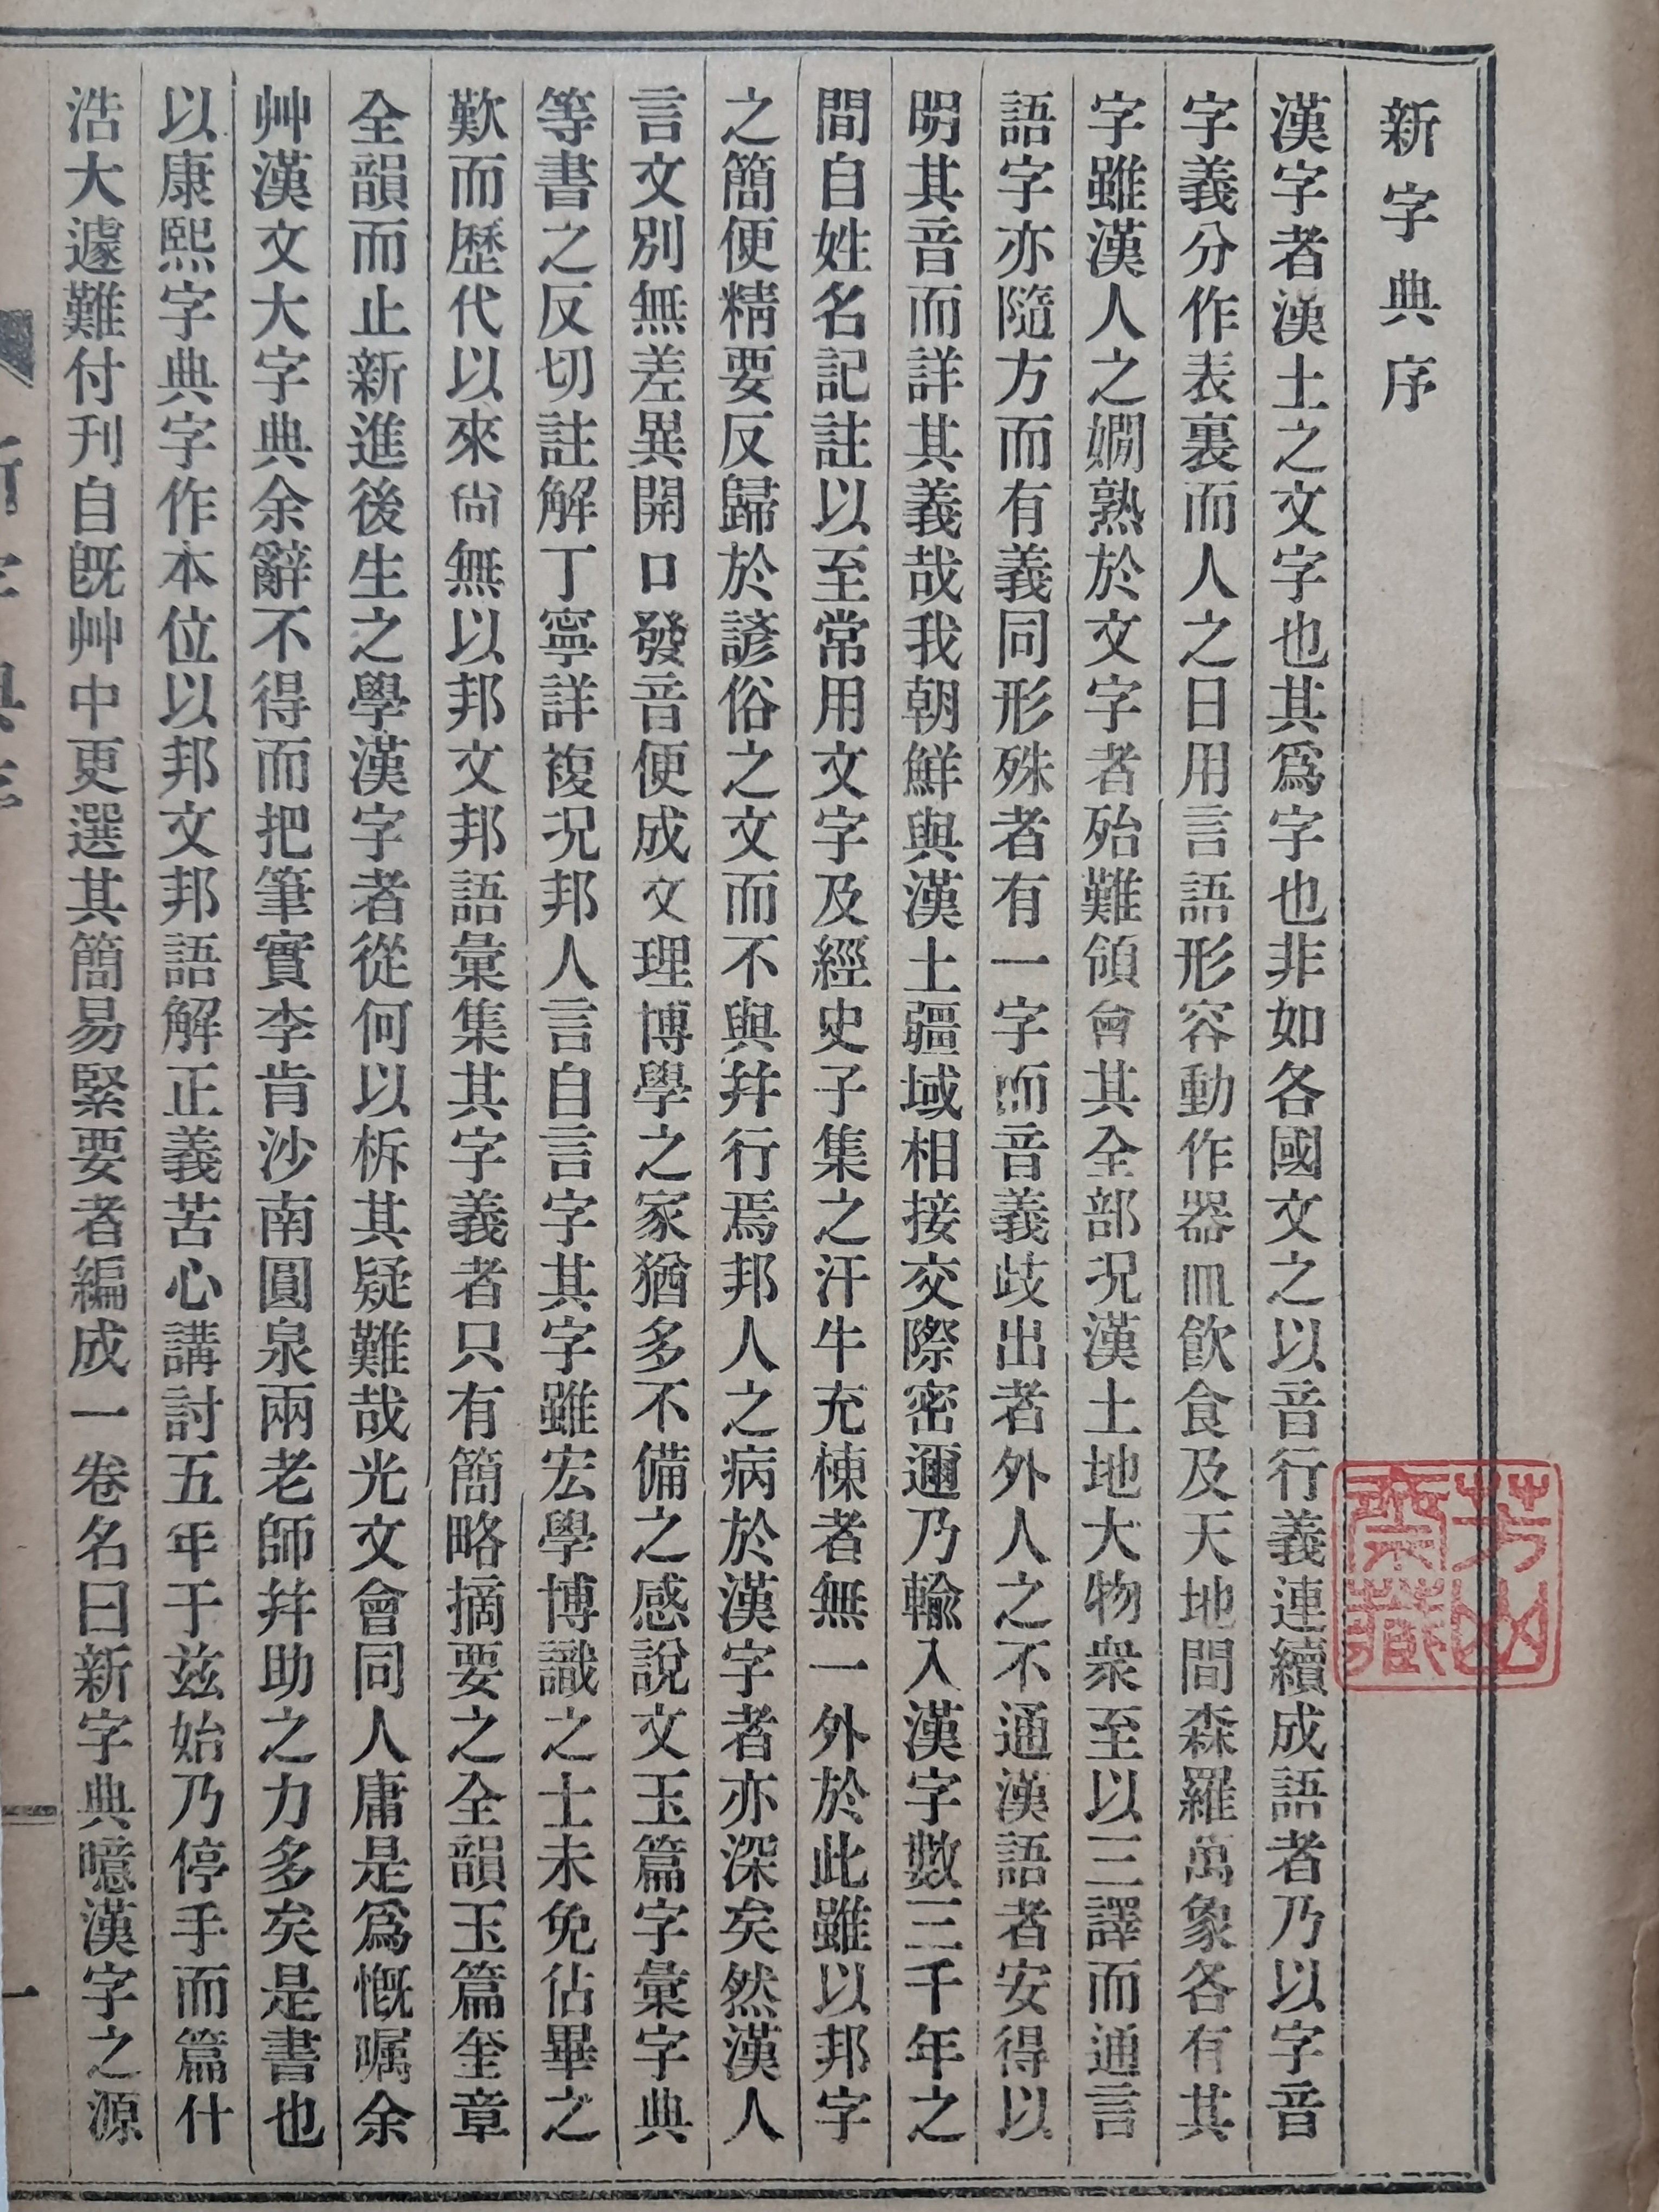 新字典序
漢字者漢土之文字也其爲字也非如各國文之以音行義連續成語者乃以字音
字義分作表裏而人之日用言語形容動作器皿飮食及天地間森羅萬象各有其
字雖漢人之嫺熟於文字者殆難領會其全部况漢土地大物衆至以三譯而通言
語字亦隨方而有義同形殊者有一字而音義歧出者外人之不通漢語者安得以
明其音而詳其義哉我朝鮮與漢土疆域相接交際密邇乃輸入漢字數三千年之
間自姓名記註以至常用文字及經史子集之汗牛充棟者無一外於此雖以邦字
之簡便精要反歸於諺俗之文而不與幷行焉邦人之病於漢字者亦深矣然漢人
言文別無差異開口發音便成文理博學之家猶多不備之感說文玉篇字彙字典
等書之反切註解丁寧詳複况邦人言自言字其字雖宏學博識之士未免佔畢之
歎而歷代以來尙無以邦文邦語彙集其字義者只有簡略摘要之全韻玉篇奎章
全韻而止新進後生之學漢字者從何以柝其疑難哉光文會同人庸是爲慨囑余
艸漢文大字典余辭不得而把筆實李肯沙南圓泉兩老師幷助之力多矣是書也
以康熙字典字作本位以邦文邦語解正義苦心講討五年于玆始乃停手而篇什
浩大遽難付刊自旣艸中更選其簡易緊要者編成一卷名曰新字典噫漢字之源
一
芳山
藏